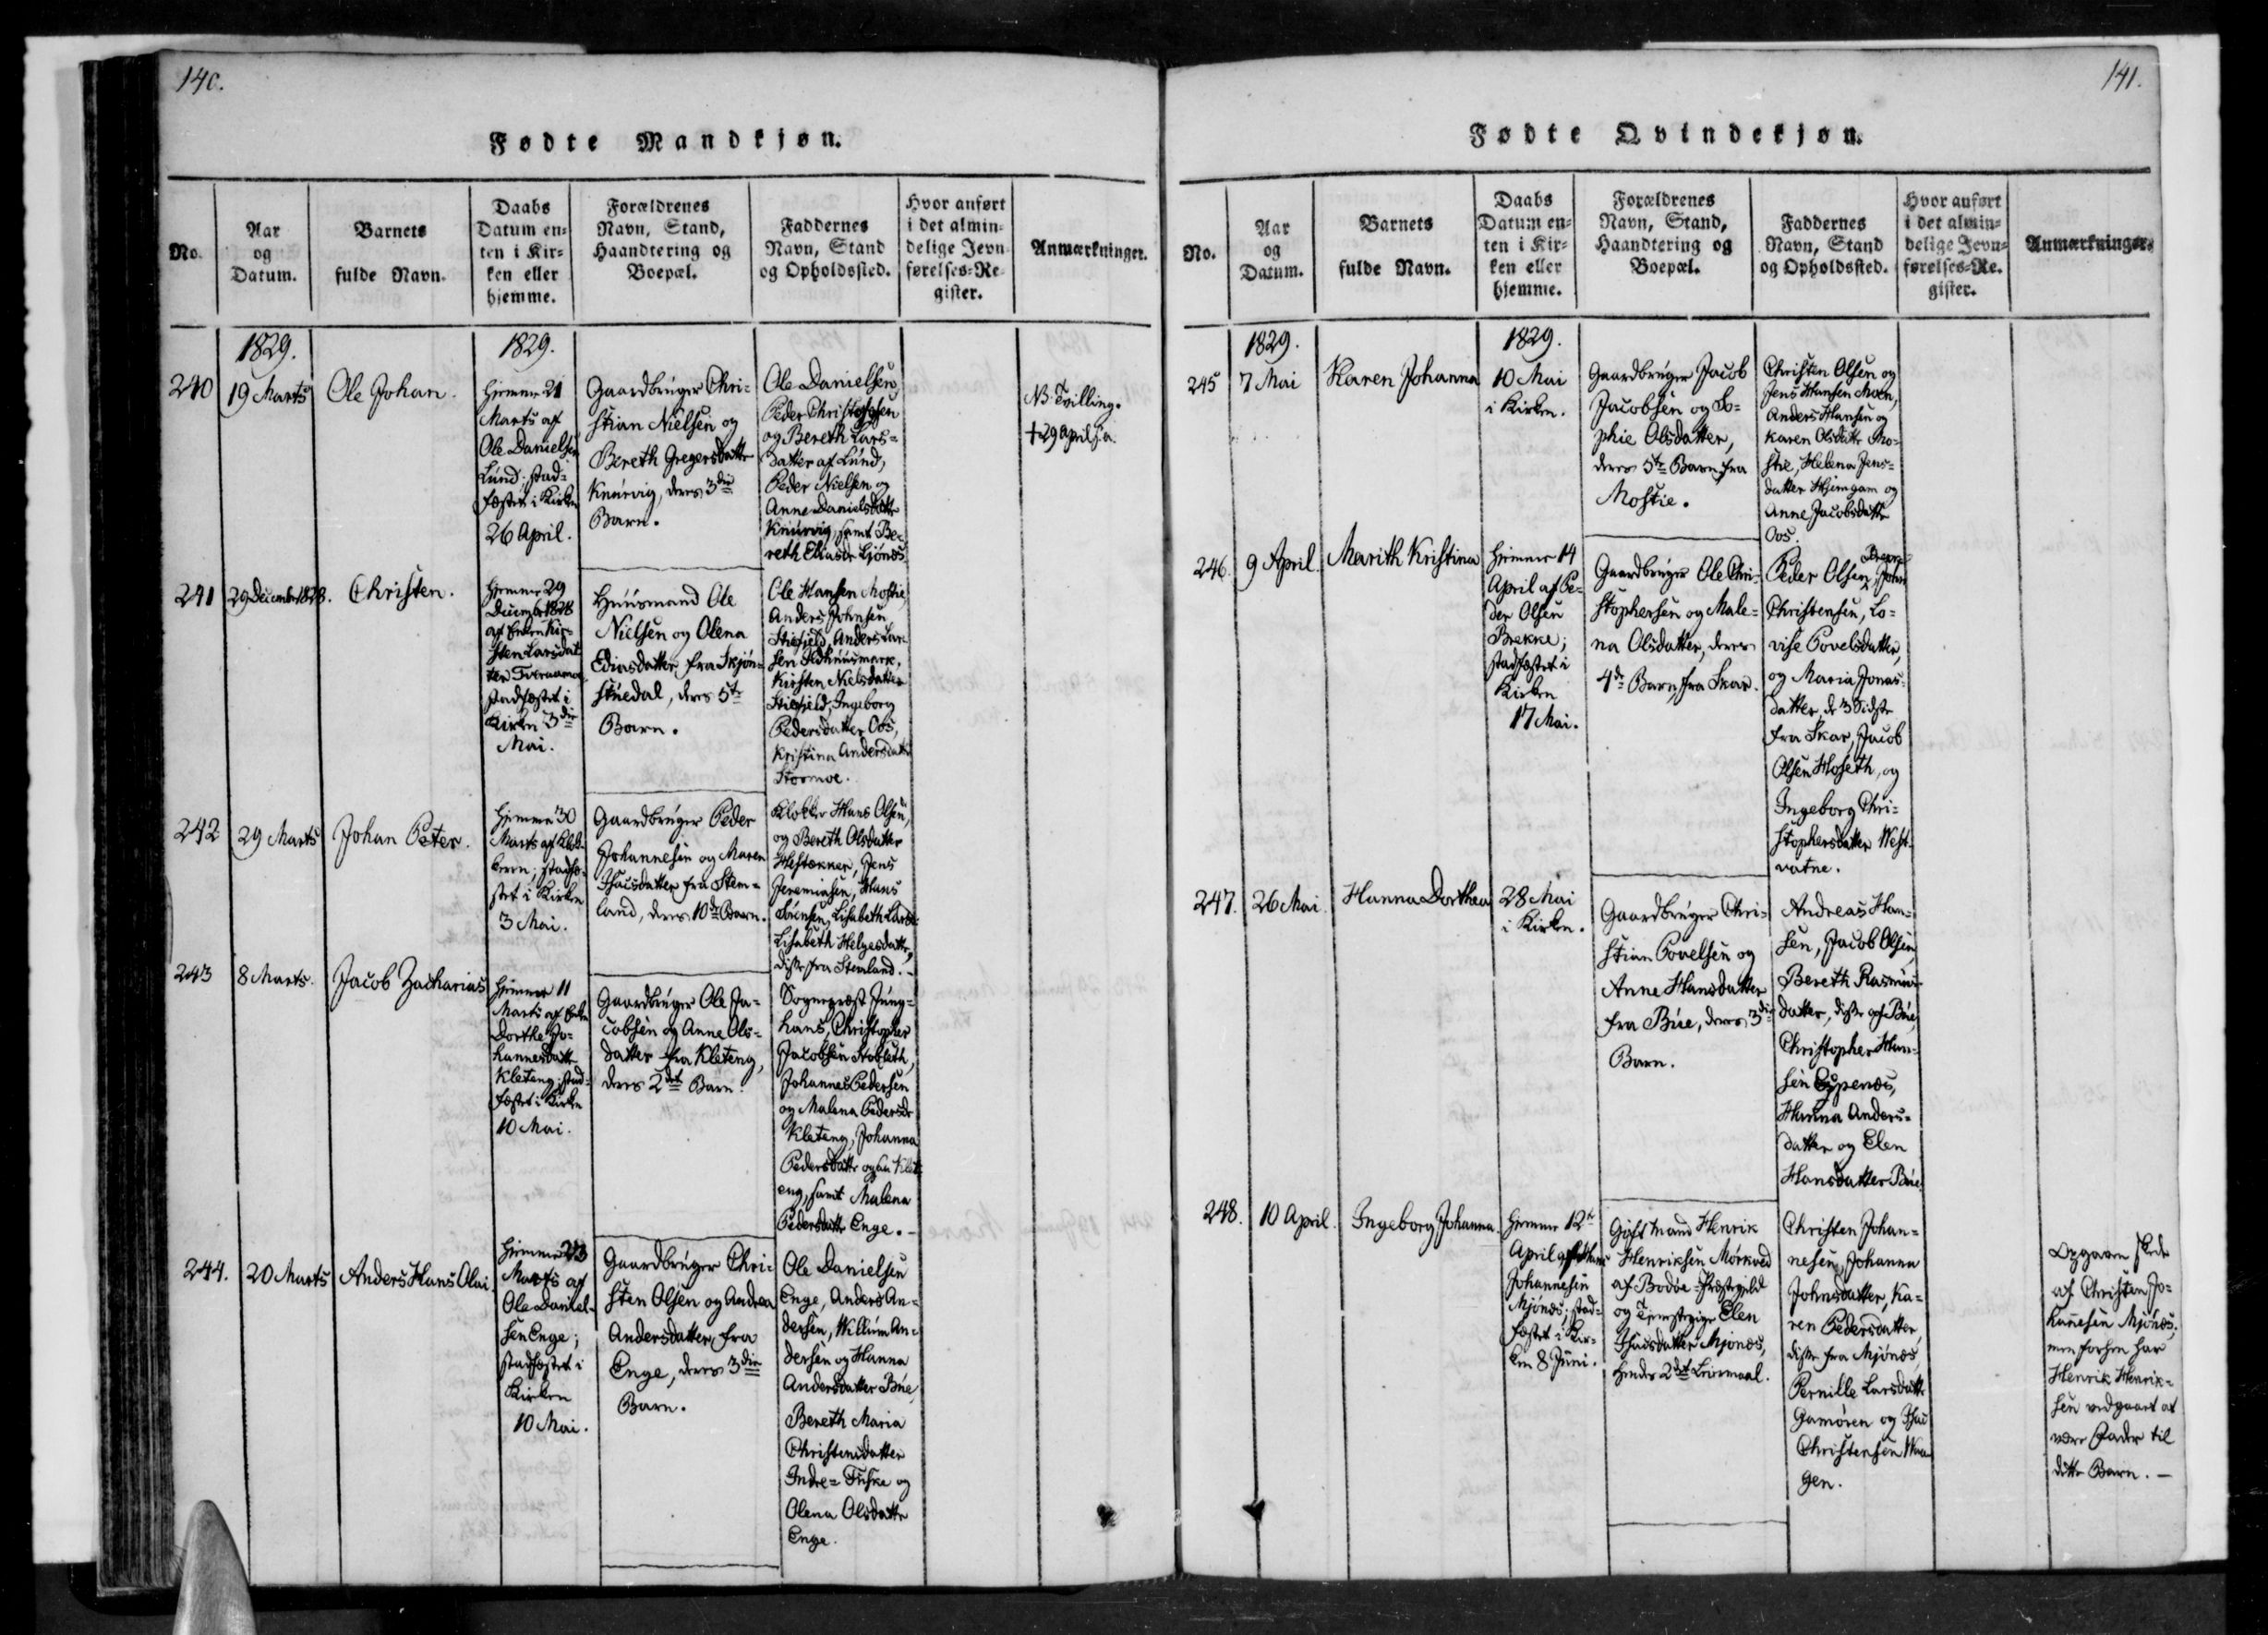 140.
Fødte Mandkjøn.
No.
Aar
og
Datum.
Barnets
fulde Navn.
Daabs
Datum en-
ten i Kir-
ken eller
hjemme.
Forældrenes
Navn, Stand,
Haandtering og
Boepæl.
Faddernes
Navn, Stand
og Opholdssted.
Hvor anført
i det almin-
delige Jevn-
førelses-Re-
gister.
Anmærkninger.
1829.
1829.
240
19 Marts
Ole Johan.
Hjemme 21
Marts af
Ole Danielsen
Lund; stad-
fæstet i Kirken
26 April.
Gaardbruger Chri-
stian Nielsen og
Bereth Gregersdatter
Knurvig, deres 3die
Barn.
Ole Danielsen,
Peder Christophsen
og Bereth Lars-
datter af Lund,
Peder Nielsen og
Anne Danielsdatter
Knurvig, samt Be-
reth Eliasdr Ljønes
NB. Tvilling.
† 29 April s.a.
241
29 December 1828.
Christen.
Hjemme 29
December 1828
af Enken Kir-
sten Larsdat-
ter Tveraamo
stadfæstet i
Kirken 3die
Mai.
Huusmand Ole
Nielsen og Olena
Ediasdatter fra Skjøn-
stuedal, deres 5te
Barn.
Ole Hansen Mostie,
Anders Johnsen
Stiefjeld, Anders Lar-
sen Ildhuusmark,
Kirsten Nielsdatter
Stiefjeld, Ingeborg
Pedersdatter Oos,
Kristina Andersdatter
Stormoe.
242
29 Marts
Johan Peter.
Hjemme 30
Marts af Klok-
keren; stadfæ-
stet i Kirken
3 Mai.
Gaardbruger Peder
Johannesen og Maren
Isaacsdatter fra Stem-
land, deres 10de Barn.
Klokker Hans Olsen,
og Bereth Olsdatter
Hestækker, Jens
Jeremiasen, Hans
Sørensen, Lisabeth Larsdr
Lisabeth Helgesdatter,
disse fra Stemland.
243
8 Marts.
Jacob Zacharias
Hjemme 11
Marts af Enken
Dorthe Jo-
hannesdatter
Kleteng; stad-
fæstet i Kirken
10 Mai.
Gaardbruger Ole Ja-
cobsen og Anne Ols-
datter fra Kleteng,
deres 2det Barn.
Sognepræst Jung-
hans, Christopher
Jacobsen Stobleth,
Johannes Pedersen
og Malena Pedersdr
Kleteng, Johanna
Pedersdatter ogsaa Klet-
eng, samt Malena
Pedersdatter Enge.
244.
20 Marts
Anders Hans Olai.
Hjemme 23
Marts af
Ole Daniel-
sen Enge;
stadfæstet i
Kirken
10 Mai.
Gaardbruger Chri-
sten Olsen og Andrea
Andersdatter, fra
Enge, deres 3die
Barn.
Ole Danielsen
Enge, Anders An-
dersen, Willum An-
dersen og Hanna
Andersdatter Bue,
Bereth Maria
Christensdatter
Indre-Fuske og
Olena Olsdatter
Enge.
141.
Fødte Qvindekjøn.
No.
Aar
og
Datum.
Barnets
fulde Navn.
Daabs
Datum en-
ten i Kir-
ken eller
hjemme.
Forældrenes
Navn, Stand,
Haandtering og
Boepæl.
Faddernes
Navn, Stand
og Opholdssted.
Hvor anført
i det almin-
delige Jevn-
førelses-Re-
gister.
Anmærkninger.
1829.
1829.
245
7 Mai
Karen Johanna
10 Mai
i Kirken.
Gaardbruger Jacob
Jacobsen og So-
phie Olsdatter,
deres 5te Barn fra
Mostie.
Christen Olsen og
Jens Hansen Moen,
Anders Hansen og
Karen Olsdatter Mo-
stie, Helena Jens-
datter Hjemgam og
Anne Jacobsdatter
Oos.
246.
9 April.
Marith Kristina
Hjemme 14
April af Pe-
der Olsen
Brekke;
stadfæstet i
Kirken
17 Mai.
Gaardbruger Ole Chri-
stophersen og Male-
na Olsdatter, deres
4de Barn, fra Skar.
Peder Olsen Brekke, John
Christensen, Lo-
vise Povelsdatter,
og Maria Jonas-
datter, de 3 sidste
fra Skar, Jacob
Olsen Hoseth, og
Ingeborg Chri-
stophersdatter West-
vatne.
247.
26 Mai.
Hanna Dorthea
28 Mai
i Kirken.
Gaardbruger Chri-
stian Povelsen og
Anne Hansdatter
fra Bue, deres 3die
Barn.
Andreas Han-
sen, Jacob Olsen,
Bereth Rasmus-
datter, disse af Bue,
Christopher Han-
sen Eypenæs,
Hanna Anders-
datter og Elen
Hansdatter Bue.
248.
10 April.
Ingeborg Johanna.
Hjemme 12te
April af Hans
Johannesen
Mjønes; stad-
fæstet i Kir-
ken 8 Juni.
Gift Mand Henrik
Henriksen Mørkved
af Bodøe-Præstegield
og Tjenestepige Elen
Isaacsdatter Mjønes,
hendes 2det Leiermaal.
Christen Johan-
nesen, Johanna
Johnsdatter, Ka-
ren Pedersdatter,
disse fra Mjønes,
Pernille Larsdatter
Gamøren og Isac
Christensen Waa-
gen.
Opgaven skede
af Christen Jo-
hanesen Mjønes;
men forhen har
Henrik Henrik-
sen vedgaaet at
være Fader til
dette Barn.